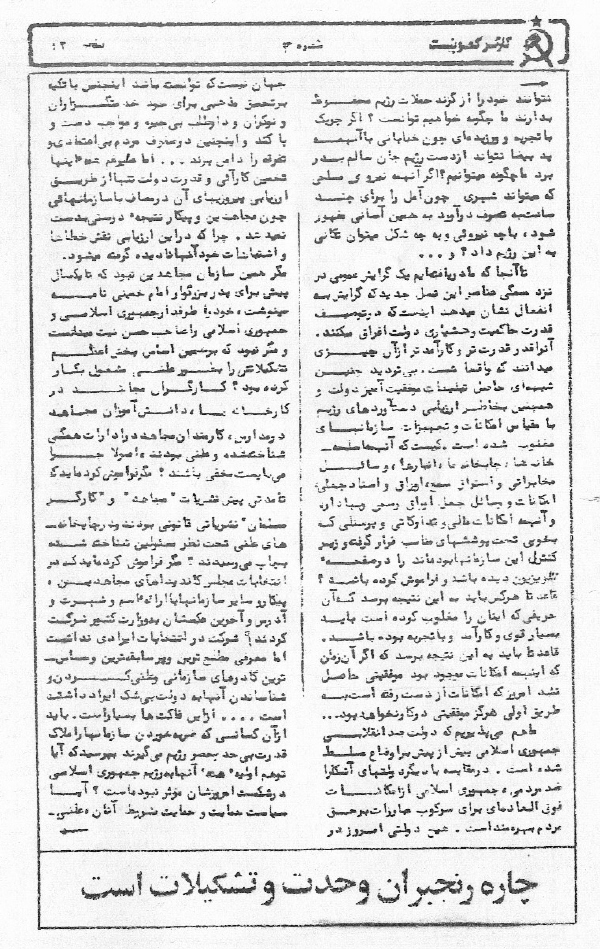 کارگر کمونیست
شماره ۳
صفحه ۱۲
نتوانند خود را از گزند حملات رژیم محفوظ
بدارند ما چگونه خواهیم توانست ؟ اگر چریک
با تجربه و ورزیده‌ای چون خیابانی با آنهمه
ید بیضا نتواند از دست رژیم جان سالم بدر
برد ما چگونه میتوانیم؟ اگر آنهمه نیروی مسلحی
که میتواند شهری چون آمل را برای چند
ساعت به تصرف درآورد به همین آسانی مقهور
شود ، با چه نیروئی و به چه شکل میتوان تکانی
به این رژیم داد ؟ و ...
تا آنجا که ما دریافته‌ایم یک گرایش عمومی در
نزد همگی عناصر این فصل جدید که گرایش به
انفعال نشان میدهد اینست که در توصیف
قدرت حاکمیت و هشیاری دولت اغراق میکنند .
آنرا قدر قدرت‌تر و کارآمدتر از آن چیزی
میدانند که واقعا هست . بی تردید چنین
شبهه‌ای حاصل تبلیغات موفقیت آمیز دولت و
همچنین بخاطر ارزیابی دستآوردهای رژیم
با مقیاس امکانات و تجهیزات سازمانهای
مغلوب شده است . کیست که آنهمه
خانه‌ها ، چاپخانه‌ها ، انبارها ، وسائل
مخابراتی و استراق سمع ، اوراق و اسناد جعلی
امکانات و وسائل جعل اوراق رسمی و
و آنهمه امکانات مالی و تدارکاتی و پرسنلی که
بخوبی تحت پوششهای مناسب قرار گرفته و زیر
کنترل این سازمانها بوده‌اند را در صفحه
تلویزیون دیده باشد و فراموش کرده باشد ؟
قاعدتا هر کس باید به این نتیجه برسد که آن
حریفی که اینان را مغلوب کرده است باید
بسیار قوی و کارآمد و با تجربه بوده باشد .
قاعدتا باید به این نتیجه برسد که اگر آن زمان
که اینهمه امکانات موجود بود موفقیتی حاصل
نشد امروز که امکانات از دست رفته است به
طریق اولی هرگز موفقیتی در کار نخواهد بود ...
ما هم می‌پذیریم که دولت ضد انقلابی
جمهوری اسلامی بیش از پیش بر اوضاع مسلط
شده است . در مقایسه با دیگر دولتهای آشکارا
ضد مردمی ، جمهوری اسلامی از امکانات
فوق العاده‌ای برای سرکوب مبارزات بر حق
مردم بهره‌مند است . هیچ دولتی امروز در
جهان نیست که توانسته باشد اینچنین با تکیه
بر تحمیق مذهبی برای خود خدمتگزاران
و نوکران و داوطلب بی جیره و مواجب دست و
پا کند و اینچنین در صفوف مردم بی اعتمادی و
تفرقه را دامن بزند ... اما علیرغم همه اینها
تعیین کارآئی و قدرت دولت تنها از طریق
ارزیابی پیروزیهای آن در مصاف با سازمانهائی
چون مجاهدین و پیکار نتیجه درستی بدست
نمیدهد . چرا که در این ارزیابی نقش خطاها
و اشتباهات خود آنها نادیده گرفته میشود .
مگر همین سازمان مجاهدین نبود که تا یکسال
پیش برای پدر بزرگوار امام خمینی نامه
مینوشت ، خود را طرفدار جمهوری اسلامی و
جمهوری اسلامی را صاحب حسن نیت میدانست
و مگر نبود که بر همین اساس بخش اعظم
تشکیلاتش را بطور علنی مشغول بکار
کرده بود ؟ کارگران مجاهد در
کارخانه‌ها ، دانش آموزان مجاهد
در مدارس ، کارمندان مجاهد در ادارات همگی
شناخته شده و علنی بودند ، اصولا چرا
می‌بایست مخفی باشند ؟ مگر فراموش کرده‌اید که
تا مدتی پیش نشریات "مجاهد" و "کارگر
مسلمان" نشریاتی قانونی بودند و در چاپخانه
های علنی تحت نظر مسئولین شناخته شده
بچاپ میرسیدند ؟ مگر فراموش کرده‌اید که در
انتخابات مجلس کاندیداهای مجاهدین ،
پیکار و سایر سازمانها با ارائه اسم و شهرت و
آدرس و آخرین عکسشان به وزارت کشور شرکت
کردند ؟ شرکت در انتخابات ایرادی نداشت
اما معرفی مطلع‌ترین و پرسابقه‌ترین و حساس
ترین کادرهای سازمانی و علنی کردن و
شناساندن آنها به دولت بی شک ایراد داشته
است .... از این فاکت‌ها بسیار است . باید
از آن کسانی که ضربه خوردن سازمانها را ملاک
قدرت بی حد و حصر رژیم می‌گیرند بپرسید که آیا
توهم اولیه همه آنها به رژیم جمهوری اسلامی
در شکست امروزشان مؤثر نبوده است ؟ آیا
سیاست حمایت و حمایت مشروط آنان ، علنی
چاره رنجبران وحدت و تشکیلات است